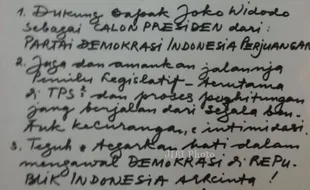 1. Dukung Bapak Joko Widodo
sebagai CALON PRESIDEN dari:
PARTAI DEMOKRASI INDONESIA PERJUANGAN
2. Jaga dan amankan jalannja
Pemilu Legislatif - terutama
di TPS2 dan proses penghitungan
jang berjalan dari segala ben-
tuk kecurangan, & intimidasi.
3. Teguh & tegarkan hati dalam
mengawal DEMOKRASI di REPU-
BLIK INDONESIA ARRcinta!